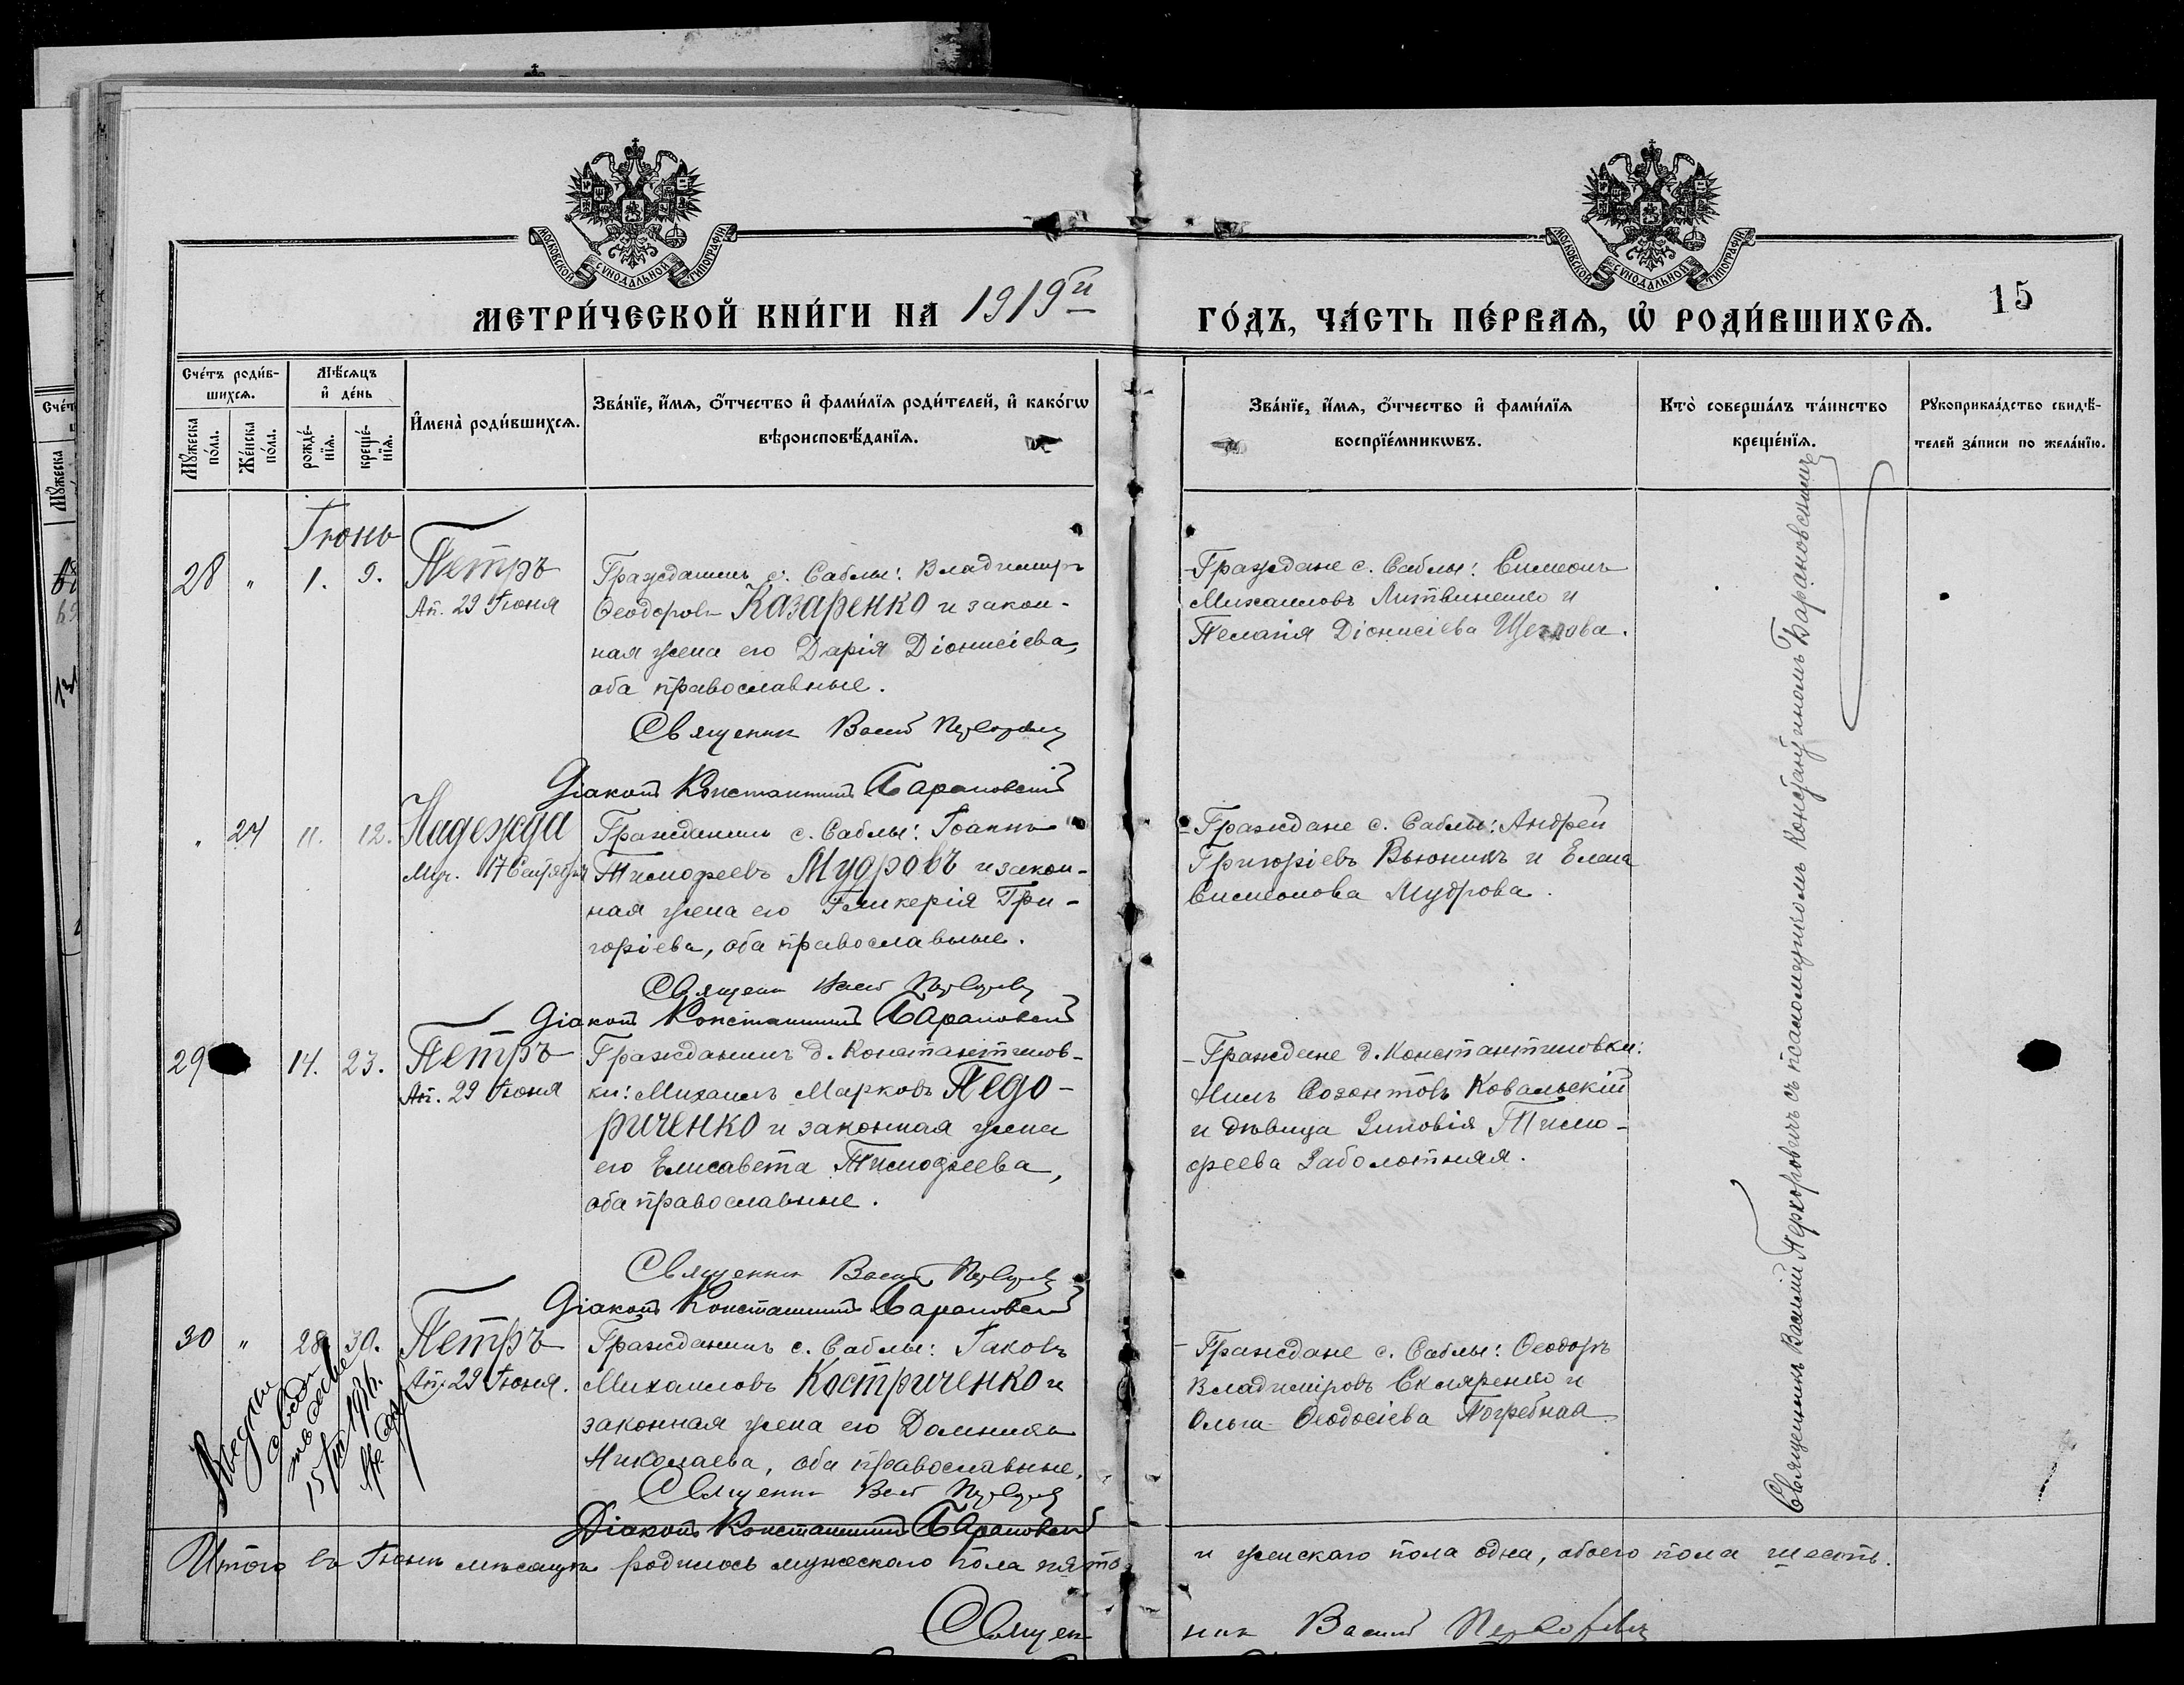 МОСКОВСКОЙ СѴНОДАЛЬНОЙ ТИПОГРАФІИ
МОСКОВСКОЙ СѴНОДАЛЬНОЙ ТИПОГРАФІИ
МЕТРИ́ЧЕСКОЙ КНИ́ГИ НА 1919й ГО́ДЪ, ЧА́СТЬ ПЕ́РВАѦ, Ѡ҆ РОДИ́ВШИХСѦ.
15
Сче́тъ роди́в-
шихсѧ.
Мꙋ́жеска
по́ла.
Же́нска
по́ла.
Мѣ́сѧцъ
и҆ де́нь
рожде́-
нїѧ.
креще́-
нїѧ.
И҆мена̀ роди́вшихсѧ.
Зва́нїе, и҆́мѧ, ѻ҆́тчество и҆ фами́лїѧ роди́телей, и҆ како́гѡ
вѣроисповѣ́данїѧ.
Зва́нїе, и҆́мѧ, ѻ҆́тчество и҆ фами́лїѧ
воспрїе́мникѡвъ.
Кто̀ соверша́лъ та́инство
креще́нїѧ.
Рꙋкоприкла́дство свидѣ́-
телей за́писи по жела́нїю.
Іюнь
28 " 1. 9. Петръ
Ап. 29 Іюня
Гражданинъ с. Саблы: Владимиръ
Ѳеодоровъ Казаренко и закон-
ная жена его Дарія Діонисіева,
оба православные.
Священник Васил
Діаконъ Константинъ Барановскій
Граждане с. Саблы: Симеонъ
Михаиловъ Литвиненко и
Пелагія Діонисіева Щеглова.
" 24 11. 12. Надежда
Муч. 17 Сентября
Гражданинъ с. Саблы: Іоаннъ
Тимофеевъ Мудровъ и закон-
ная жена его Гликерія Гри-
горіева, оба православные.
Священник Васил
Діаконъ Константинъ Барановскій
Граждане с. Саблы: Андрей
Григоріевъ Вьюникъ и Елена
Симеонова Мудрова.
29 14. 23. Петръ
Ап. 29 Іюня
Гражданинъ д. Константинов-
ки: Михаилъ Марковъ Педо-
риченко и законная жена
его Елисавета Тимофеева,
оба православные.
Священник Васил
Діаконъ Константинъ Барановскій
Граждане д. Константиновки:
Нилъ Созонтовъ Ковальскій
и дѣвица Зиновія Тимо-
феева Заболотная.
30 " 28 30. Петръ
Ап. 29 Іюня.
Гражданинъ с. Саблы: Іаковъ
Михаиловъ Костриченко и
законная жена его Домника
Николаева, оба православные.
Священник Васил
Діаконъ Константинъ Барановскій
Граждане с. Саблы: Ѳеодоръ
Владиміровъ Скляренко и
Ольга Ѳеодосіева Погребная
15/III 1936.
Священникъ Василій Перхоровичъ съ псаломщикомъ Константиномъ Барановскимъ
Итого въ Іюнѣ мѣсяцѣ родилось мужеского пола пять и женскаго пола одна, обоего пола шесть.
Священ-
ник Василий